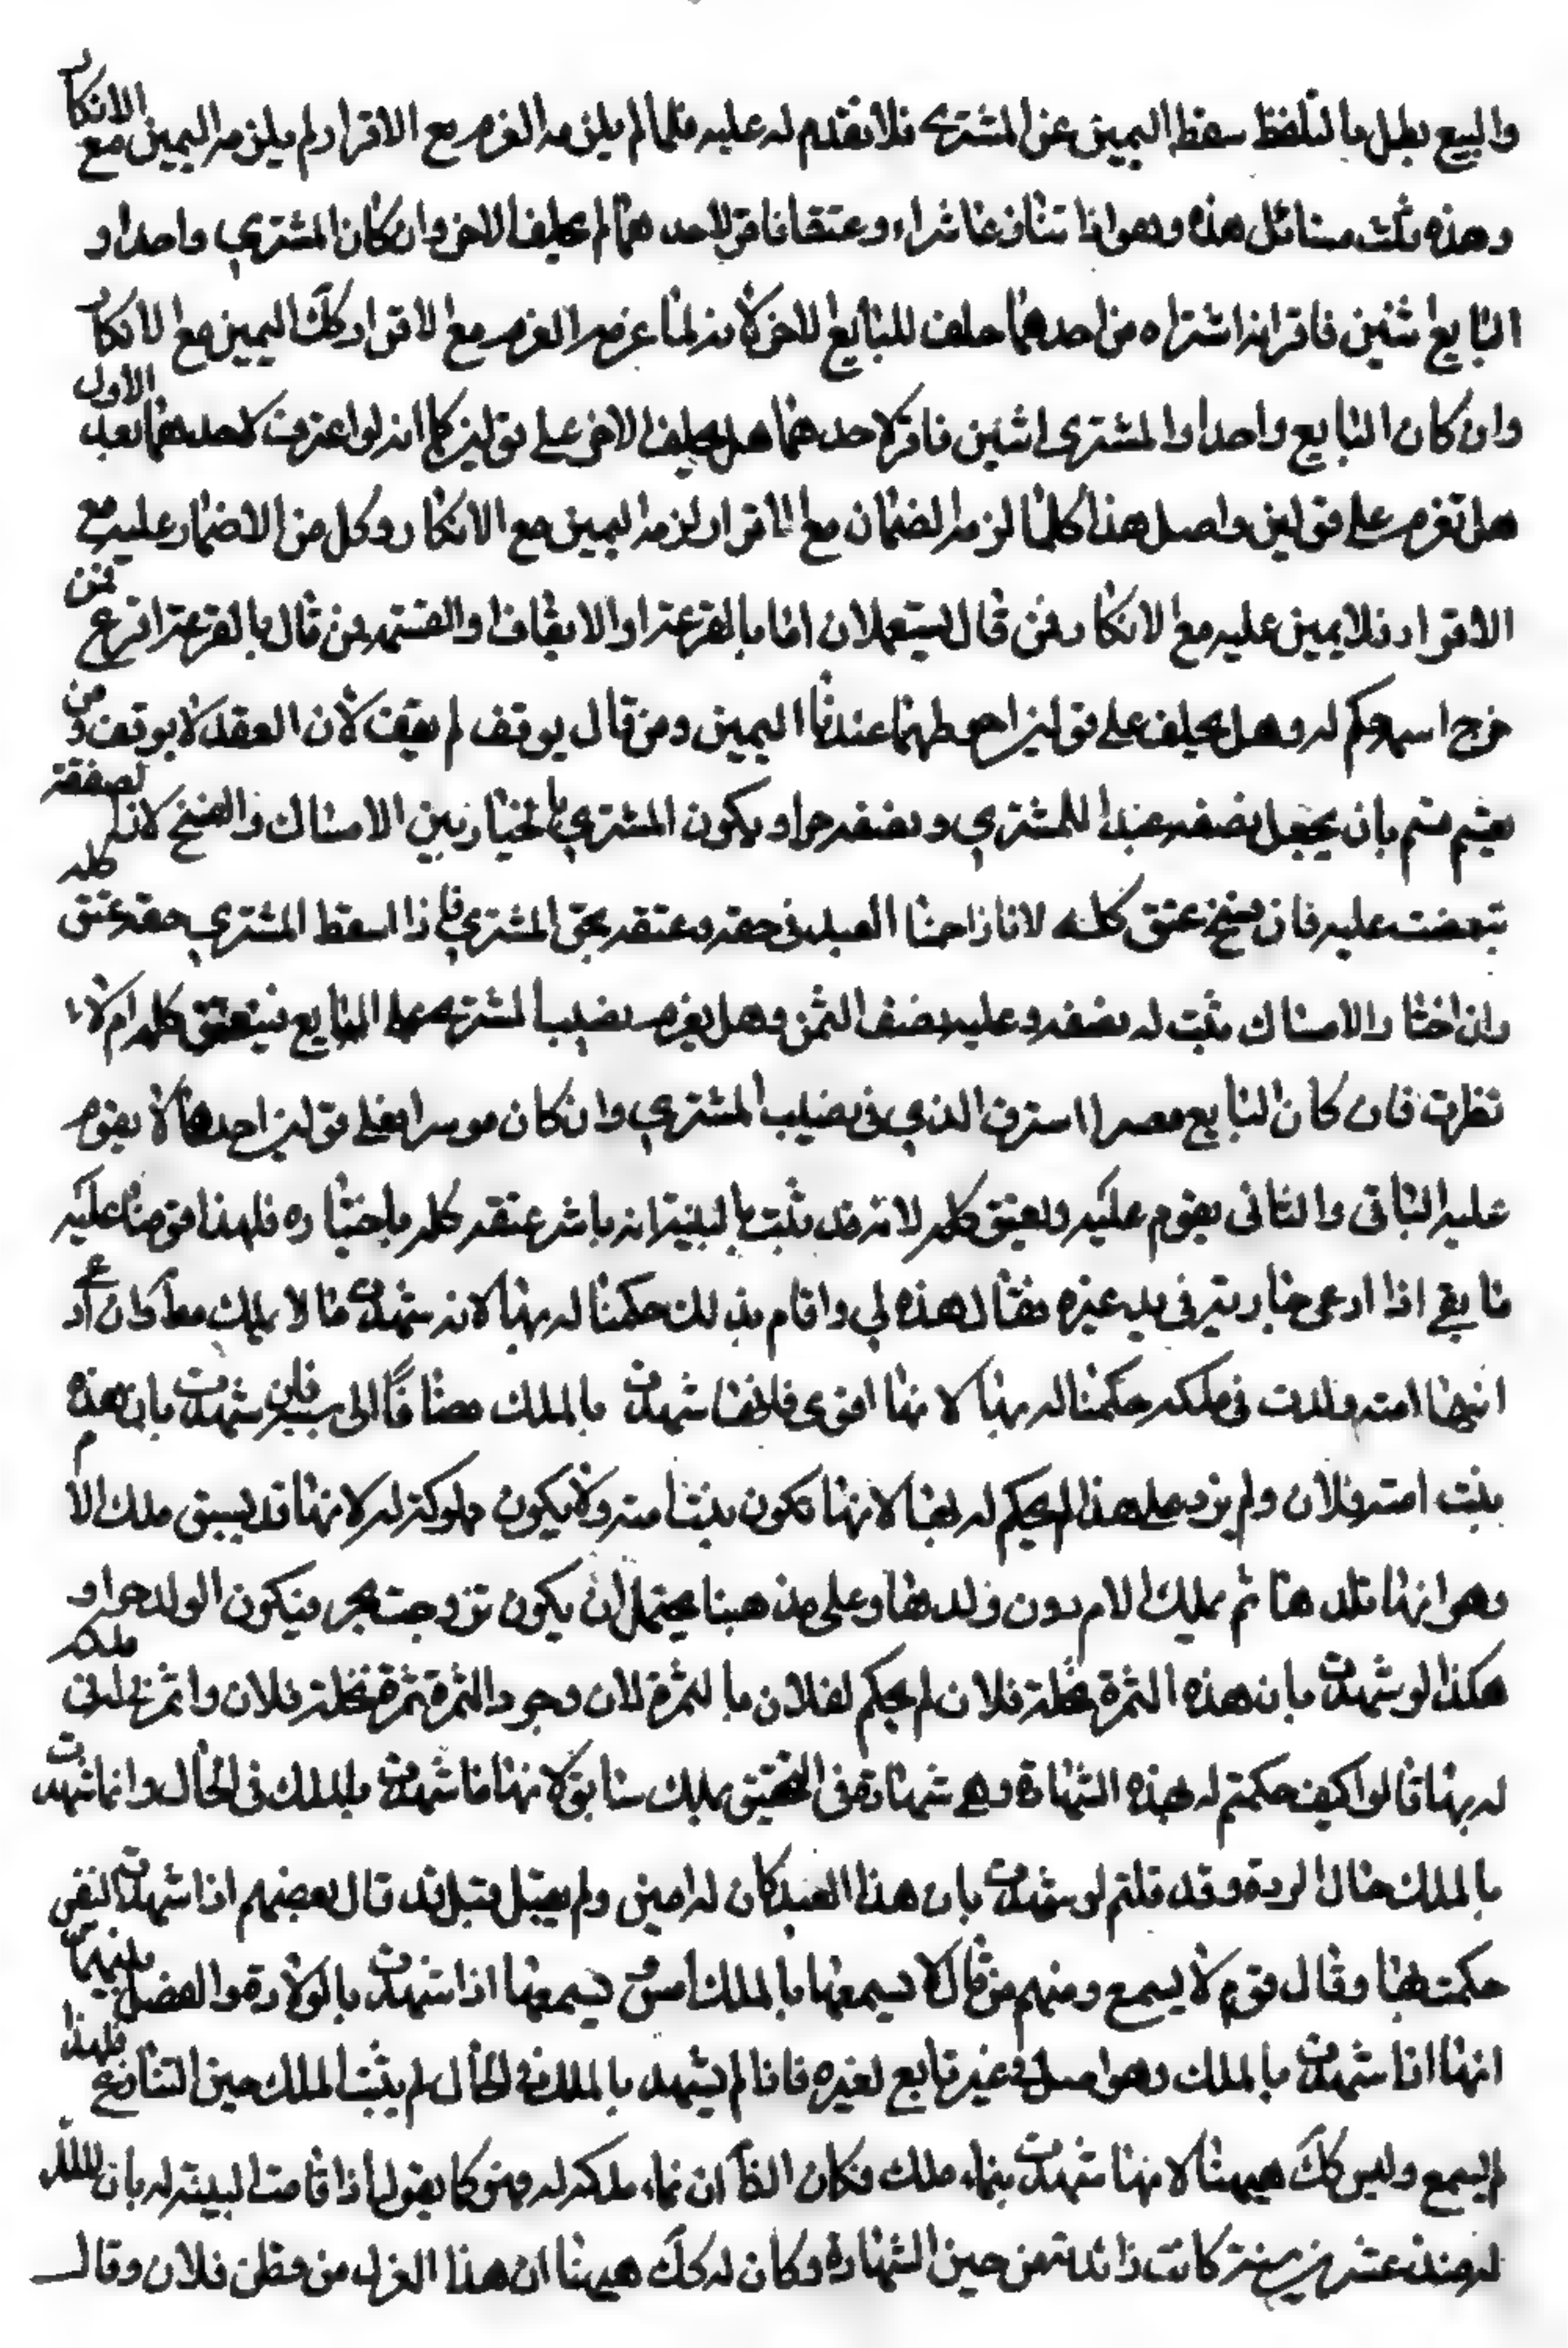 والبيع بطل بالتلفظ سقط اليمين عن المشتري فلا تقدم له عليه فلما لم يلزمه الغرم مع الاقرار لم يلزمه اليمين مع الانكار
وهذه ثلث مسائل هذه وهو اذا تنازعا شراء وعتقا فاقر لاحدهما لم يحلف الاخر وان كان المشتري واحدا و
البايع اثنين فاقر انه اشتراه من احدهما حلف للبايع الاخر لانه لما غرمه الغرم مع الاقرار كك اليمين مع الانكار
وان كان البايع واحدا والمشتري اثنين فاقر لاحدهما هل يحلف الاخر على قولين كما انه لو اعترف لاحدهما بعد الاول
هل تغرم على قولين واصل هذا كلما لزمه الضمان مع الاقرار لزمه اليمين مع الانكار وكل من لا ضمان عليه مع
الاقرار فلا يمين عليه مع الانكار ومن قال يستعملان اما بالقرعة او الايقاف او القسمة فمن قال بالقرعة اقرع فمن
خرج اسمه حكم له وهل يحلف على قولين احوطهما عندنا اليمين ومن قال يوقف لم يقف لان العقد لا يوقف ومن
يقسم قسم بان يجعل نصفه عبدا للمشتري ونصفه حرا ويكون المشتري بالخيار بين الامساك والفسخ لان الصفقة
تبعضت عليه فان فسخ عتق كله لانا زاحمنا العبد في حقه وعتقه بحق المشتري فاذا اسقط المشتري حقه عتق كله
وان اختار الامساك ثبت له نصفه وعليه نصف الثمن وهل يغرم نصيب المشتري على البايع فيعتق كله ام لا
نظرت فان كان البايع معسرا استرق الذي في نصيب المشتري وان كان موسرا فعلى قولين احدهما لا يقوم
عليه الباقي والثاني يقوم عليه ويعتق كله لانه قد ثبت بالبينة انه باشر عتقه كله باختياره فلهذا قومناه عليه
ما بقي اذا ادعى جارية في يد غيره فقال هذه لي واقام بذلك حكمنا له بها لانه شهدت مالا بملك مط وان ادعى
انها ابنة امته ولدت في ملكه حكمنا له بها لانها اقوى فانها شهدت بالملك مضافا الى سببه فان شهدت بان هذه
بنت امة فلان ولم يزد على هذا لم يحكم له بها لانها تكون بنت امته ولا يكون مملوكة له لانها قد يسبق ملك الام
وهو انها تلدها ثم يملك الام دون ولدها وعلى مذهبنا يحتمل ان يكون تزوجت بحر فيكون الولد حرا و
هكذا لو شهدت بان هذه الثمرة نخلة فلان لم يحكم لفلان بالثمرة لان وجود الثمرة ثمرة نخلة فلان واثمر نخله في ملكه
له بها قالوا كيف حكمتم له بهذه الشهادة وهي شهادة في التحقيق بملك سابق لانها ما شهدت بالملك في الحال وانما شهدت
بالملك حال الردة وقد قلتم لو شهدت بان هذا العبد كان له امس ولم يقبل قيل قد قال بعضهم اذا شهدت
حكمت بها وقال قوم لا يسمع ومنهم من قال لا يسمعها بالملك امس ويسمعها اذا شهدت بالولادة والفصل بينهما
انها اذا شهدت بالملك وهو اصل في غير تابع لغيره فاذا لم يشهد بالملك في الحال لم يثبت الملك حين التنازع فلهذا
لم يسمع وليس كك هيهنا لانها شهدت بنماء ملك فكان الظآ ان نماء ملكه له وهو كما يقول اذا قامت البينة له بان الملك
له منذ عشرين سنة كانت زائدة من حين الشهادة وكان له كك هيهنا ان هذا الغزل من قطن فلان وقال